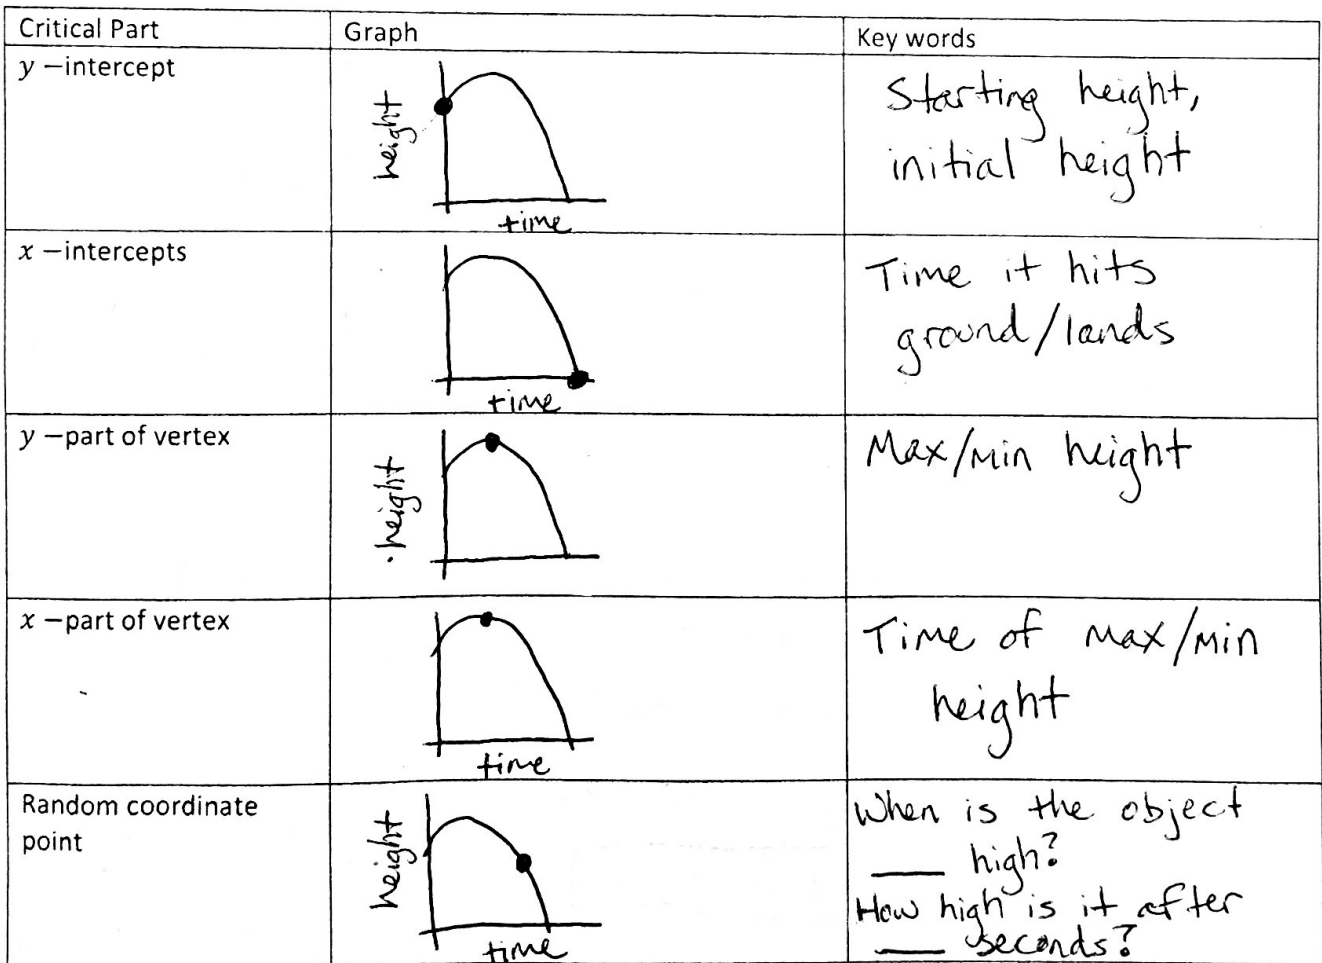 Critical Part
Graph
Key words
y –intercept
height
time
Starting height,
initial height
x –intercepts
time
Time it hits
ground/lands
y –part of vertex
height
Max/Min height
x –part of vertex
time
Time of Max/Min
height
Random coordinate
point
height
time
When is the object
___ high?
How high is it after
___ seconds?